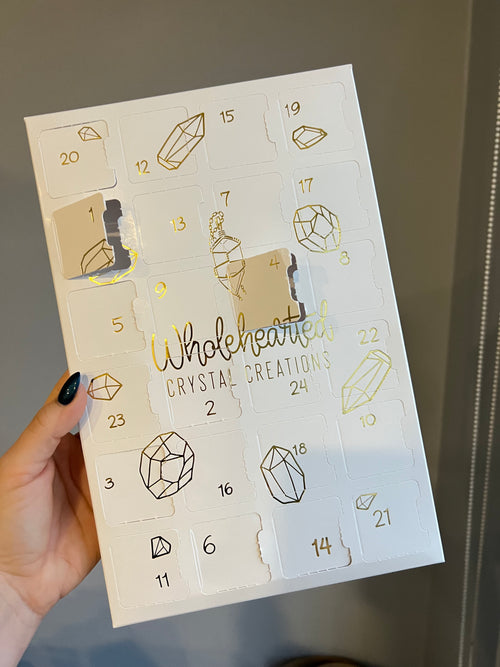 20
12
15
19
1
13
7
17
5
9
4
8
Wholehearted
CRYSTAL CREATIONS
23
2
24
22
3
16
18
10
11
6
14
21